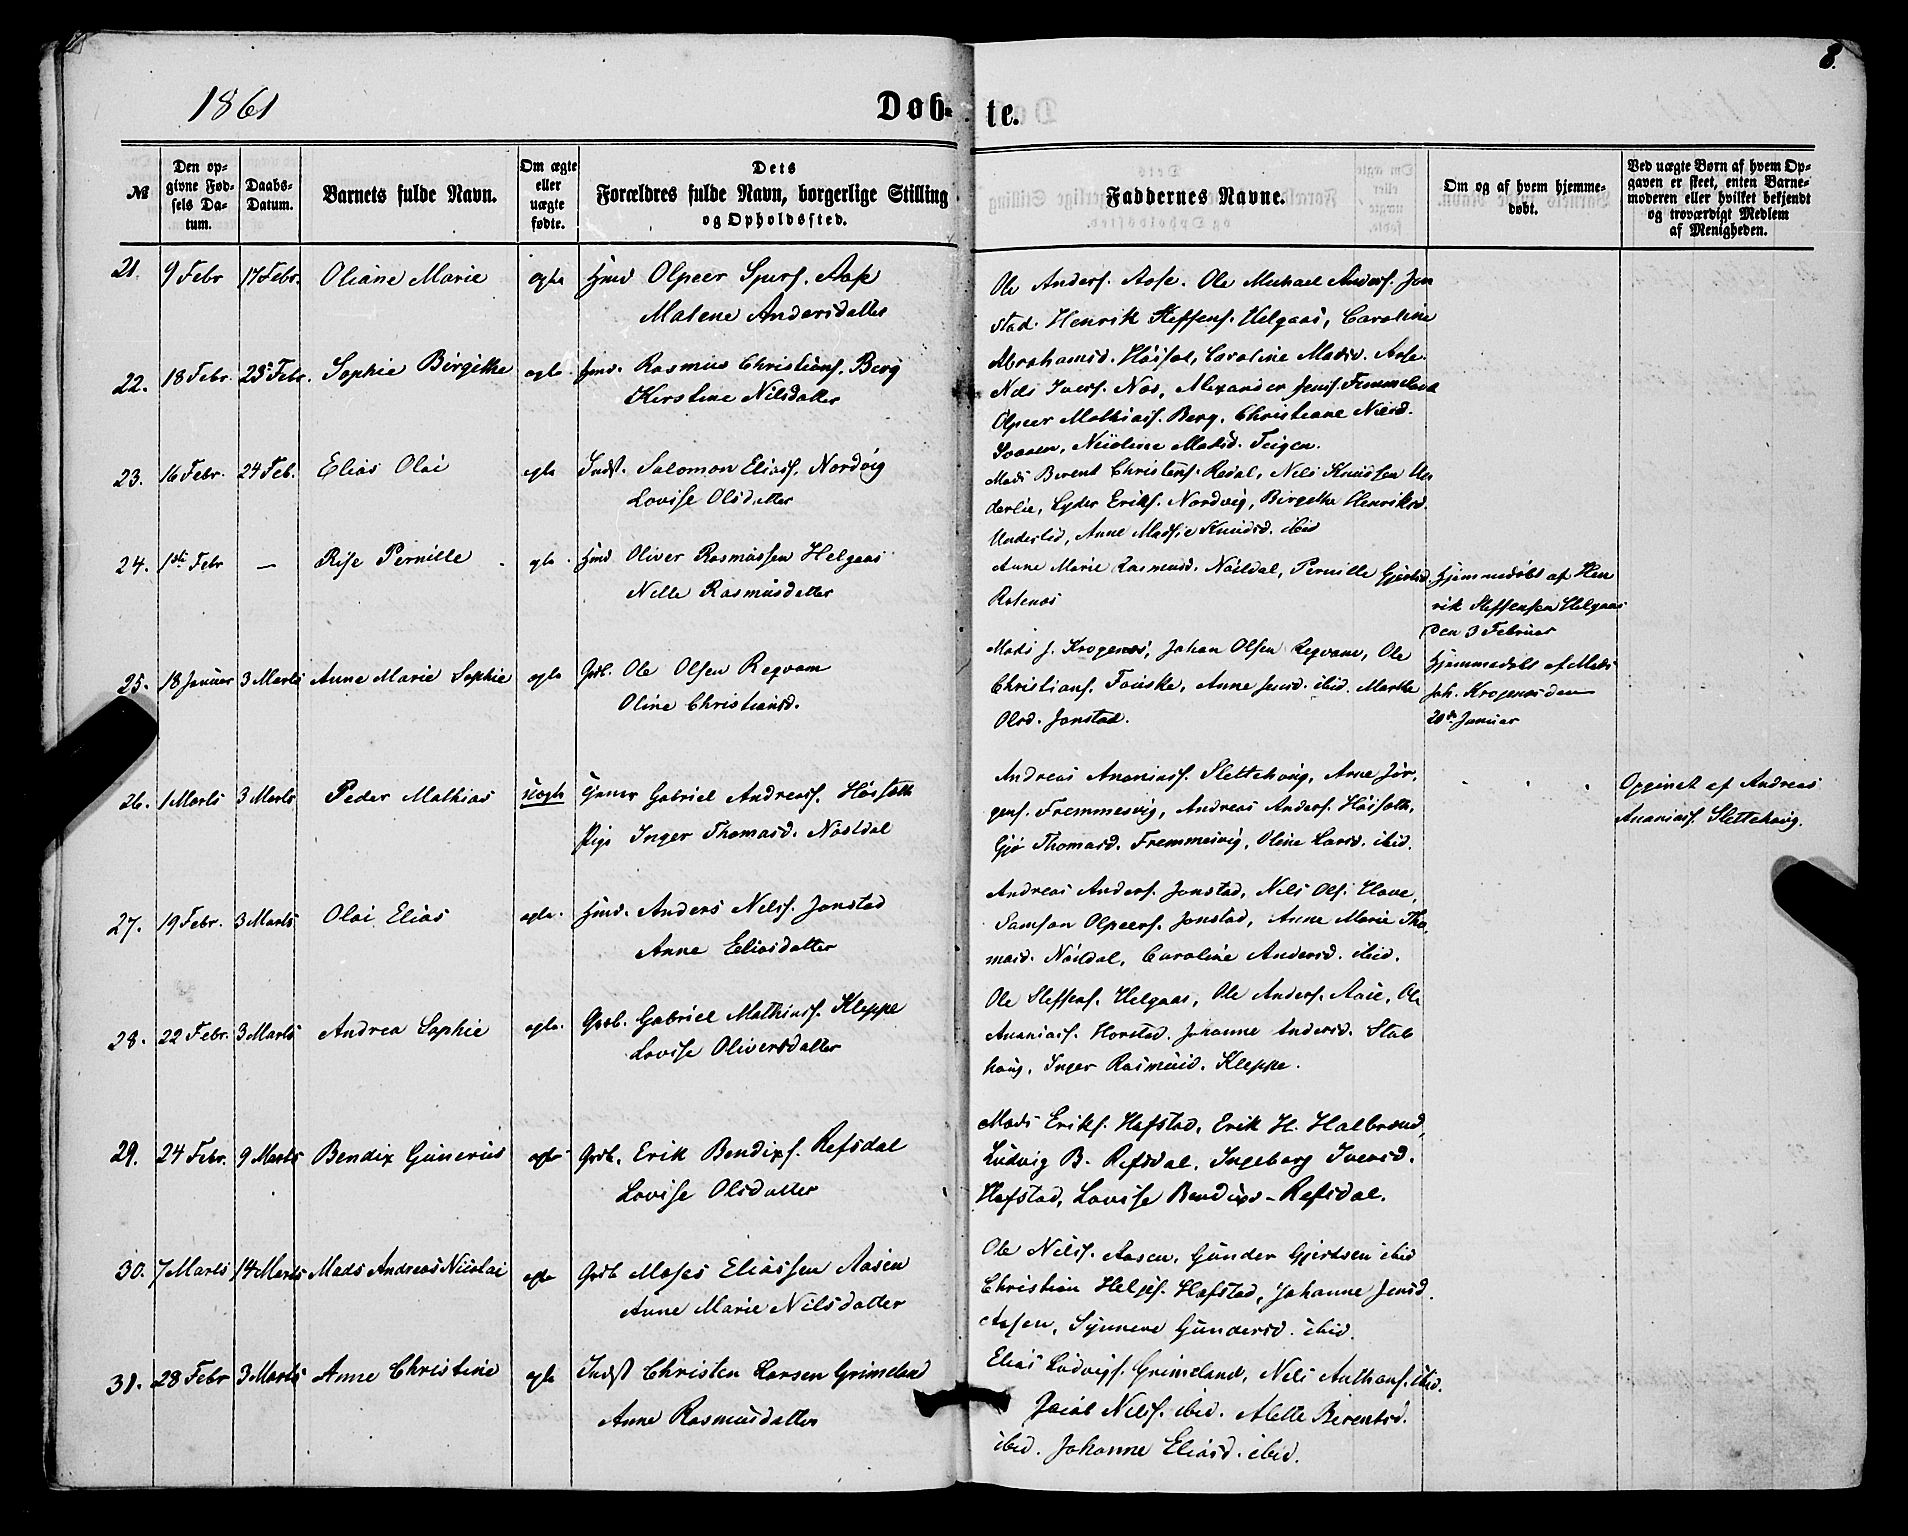 8.
1861
Døb- te.
№
Den op-
givne Fød-
sels Da-
tum.
Daabs-
Datum.
Barnets fulde Navn.
Om ægte
eller
uægte
fødte.
Dets
Forældres fulde Navn, borgerlige Stilling
og Opholdssted.
Faddernes Navne.
Om og af hvem hjemme-
døbt.
Ved uægte Børn af hvem Op-
gaven er skeet, enten Barne-
moderen eller hvilket bekjendt
og troværdigt Medlem
af Menigheden.
21. 9 Febr 17 Febr. Oliane Marie ægte Hmd Olpeer Sjurs. Aase
Malene Andersdatter
Ole Anders. Aase. Ole Michael Anders. Jon
stad. Henrik Steffens. Helgaas, Caroline
Abrahamsd. Høifæt, Caroline Madsd. Aase.
22. 18 Febr. 25 Febr. Sophie Birgithe ægte Hmd. Rasmus Christians. Berg
Kirstine Nilsdatter
Nils Ivers. Næs, Alexander Jens.
Olpeer Mathias. Berg, Christiane Nilsd.
Nicoline Madsd. Teigen.
23. 16 Febr. 24 Feb. Elias Olai ægte Indst. Salomon Elias. Nordvig
Lovise Olsdatter
Mads Berent Christens. Redal, Nils Knudsen Un
derlie, Lyder Eriks. Nordvig, Birgethe Henriksd.
Underlid, Anne Knudsd. ibid
24. 1ste Febr — Rise Pernille ægte Hmd Oliver Rasmussen Helgaas
Nille Rasmusdatter
Anne Marie Rasmusd. Nøsldal, Pernille Gjertsd.
Hjemmedøbt af Hen
rik Steffensen Helgaas
den 3 Februar
25. 18 Januar 3 Marts Anne Marie Sophie ægte Grdb. Ole Olsen Reqvam
Oline Christiansd.
Mads J. Krogenæs, Johan Olsen Reqvam, Ole
Christians. Fonske, Anne Jensd. ibid. Marthe
Olsd. Jonstad.
Hjemmedøbt af Mads
Joh. Krogenæs den
20de Januar
26. 1 Marts 3 Marts Peder Mathias uægte Gabriel Andreas. Høifæth
Pige Inger Thomasd. Nøsdal
Andreas Ananias. Slettehaug, Arne Jør,
gens. Fremmesvig, Andreas Anders. Høifæth,
Thomasd. Fremmesvig, Oline Larsd. ibid.
Opgivet af Andreas
Ananias. Slettehaug.
27. 19 Febr. 3 Marts Olai Elias ægte Hmd. Anders Nils. Jonstad
Anne Eliasdatter
Andreas Anders. Jonstad, Nils Ols. Hove,
Samson Olpeers. Jonstad, Anne Marie Tho,
masd. Nøsldal, Caroline Andersd. ibid.
28. 22 Febr. 3 Marts Andrea Sophie ægte Grdb. Gabriel Mathias. Kleppe
Lovise Oliversdatter
Ole Steffens. Helgaas, Ole Anders. Aase, Ole
Ananias. Horstad. Johanne Andersd. Slab
haug, Inger Rasmusd. Kleppe.
29. 24 Febr. 9 Marts Bendix Gunerius ægte Grdb. Erik Bendixs. Refsdal
Lovise Olsdatter
Mads Eriks. Hafstad, Erik H. Halbrend,
Ludvig B. Refsdal, Ingeborg Iversd.
Hafstad, Lovise Bendixd. Refsdal.
30. 7 Marts 14 Marts Mads Andreas Nicolai ægte Grdb Moses Eliassen Aasen
Anne Marie Nilsdatter
Ole Nilss. Aasen, Gunder Gjertsen ibid
Christian Helges. Hafstad, Johanne Jensd.
Aasen, Synneve Gundersd. ibid.
31. 28 Febr 3 Marts Anne Christine ægte Indst Christen Larsen Grimeland
Anne Rasmusdatter
Elias Ludvigs. Grimeland, Nils Anthons. ibid.
Jacob Nilss. ibid. Alette Berentsd.
ibid. Johanne Eliasd. ibid.